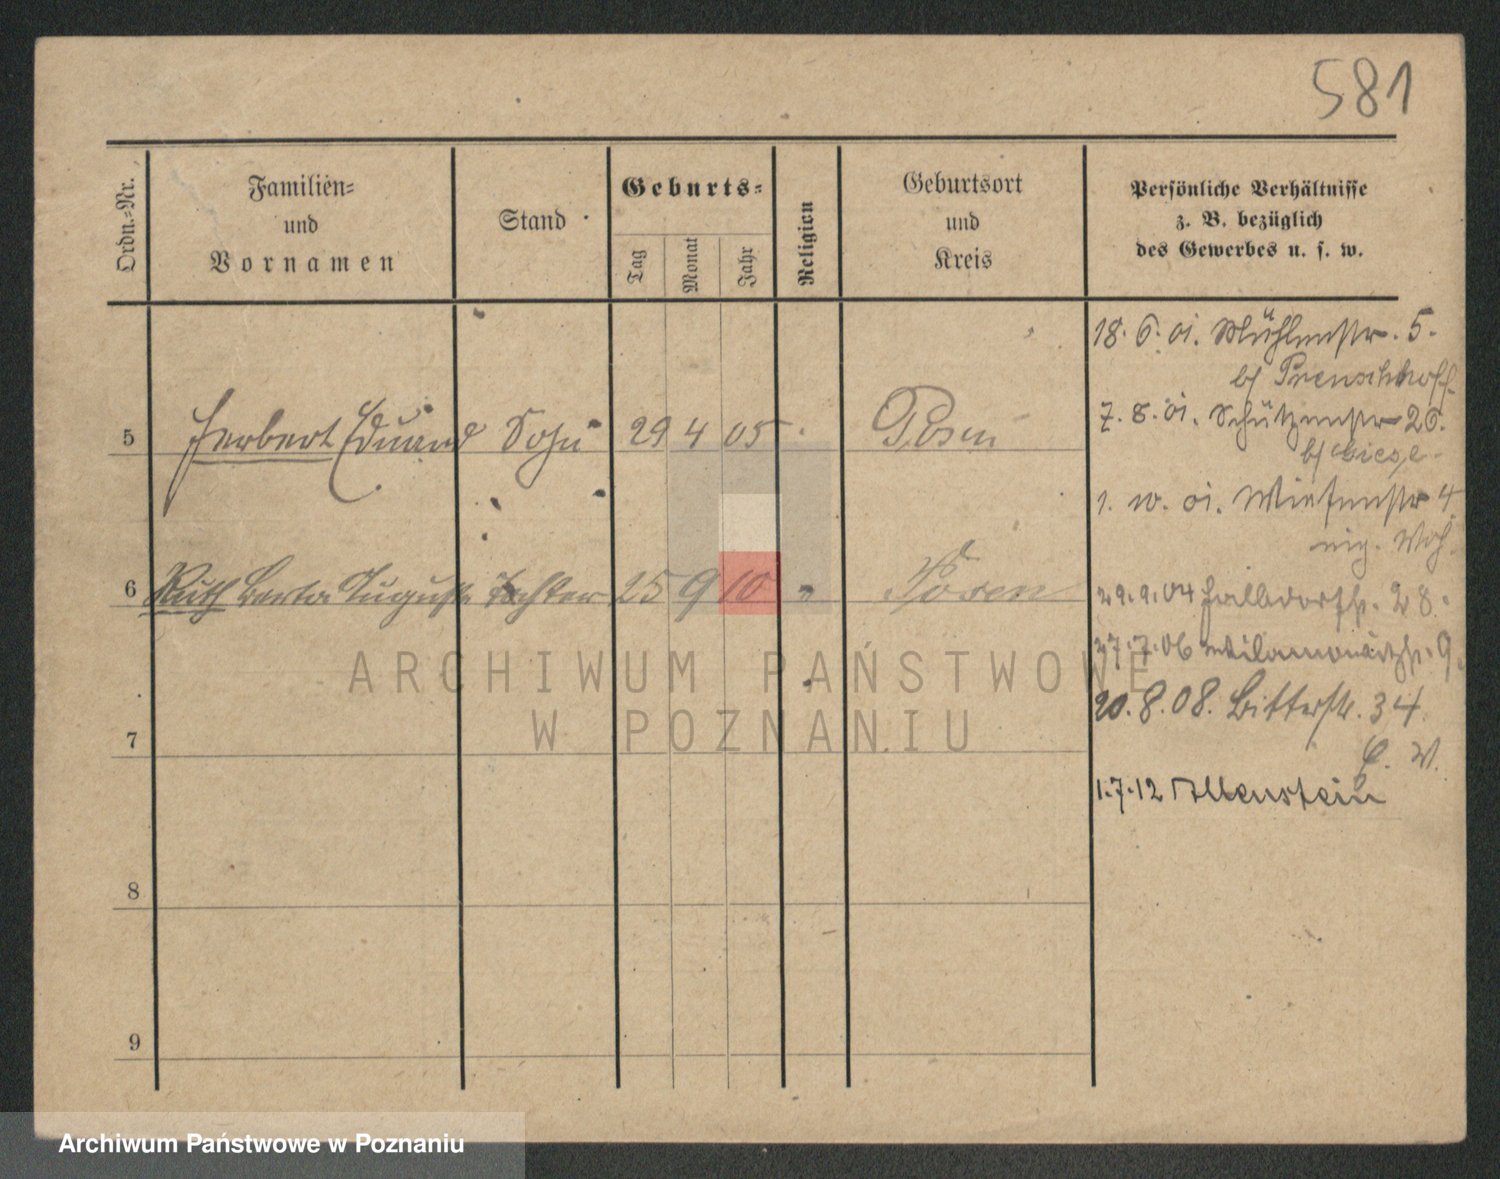 581
Ordn.=Nr.
Familien=
und
Vornamen
Stand
Geburts=
Tag
Monat
Jahr
Religion
Geburtsort
und
Kreis
Persönliche Verhältnisse
z. B. bezüglich
des Gewerbes u. s. w.
18. 6. 01. Mühlenstr. 5.
b/
7. 8. 01. Schützenstr 26.
b/ Giese
5 Herbert Eduard Sohn 29 4 05 Posen
1. 10. 01. Wiesenstr 4.
eig. Woh.
6 Ruth Berta Auguste Tochter 25 9 10 " Posen
29. 9. 04 28.
27. 7. 06 9
20. 8. 08. Bitterstr. 34
7
1. 7. 12 Allenstein
8
9
ARCHIWUM PAŃSTWOWE
W POZNANIU
Archiwum Państwowe w Poznaniu